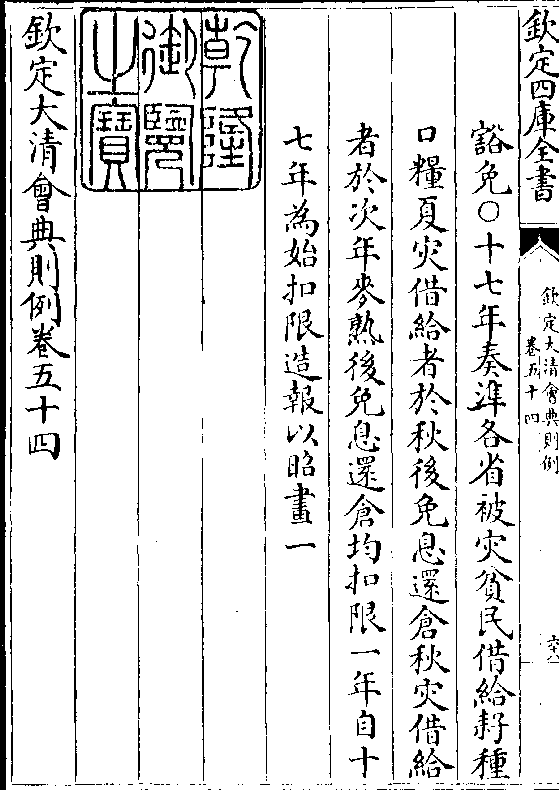 欽定四庫全書
欽定大清會典則例
卷五十四
六十八
豁免○十七年奏准各省被灾貧民借給耔種
口糧夏灾借給者於秋後免息還倉秋灾借給
者於次年麥熟後免息還倉均扣限一年自十
七年為始扣限造報以昭畫一
乾隆
御覽
之寶
欽定大清會典則例卷五十四